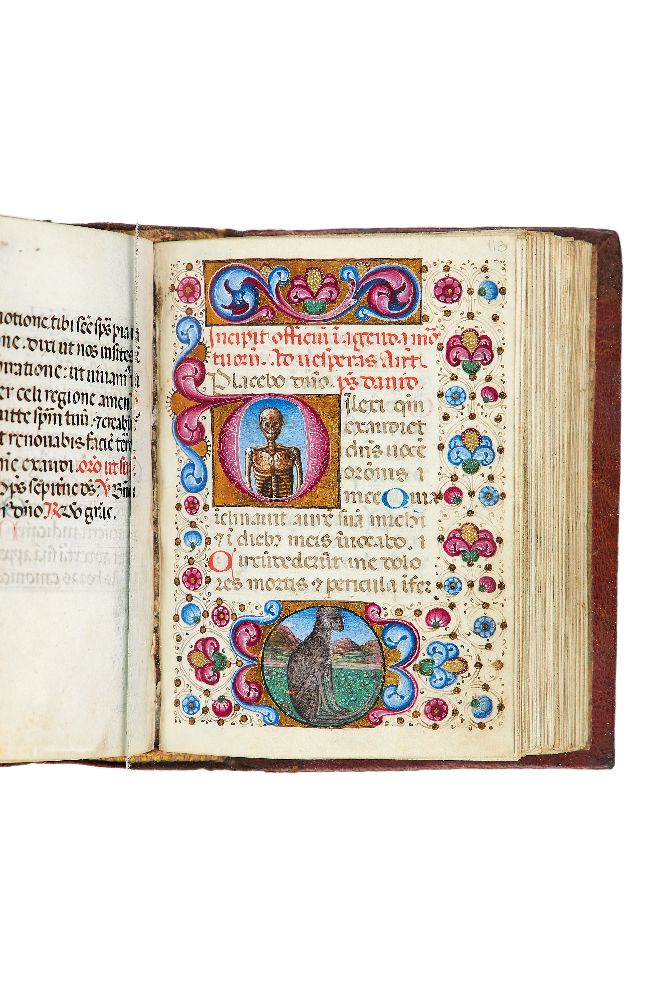 notione tibi sce sps pra
ne. dixi ut nos instes
matione: ut uniam
er celi regione amen
itte spm tuu. et creabu
t renouabis facie terre
ne exaudi. oro ut sup
Dps sepitne ds. V. Bnm
r dno R. Deo grac.
113
Incipit officiu i agenda mor
tuoru. Ad uesperas Anti.
Placebo dno. ps dauid.
Dilexi qm
exaudiet
dns uoce
oronis i
mee Quia
iclinauit aure sua michi
et i dieb meis iuocabo. i
Circudederut me dolo
res mortis et pericula ifer